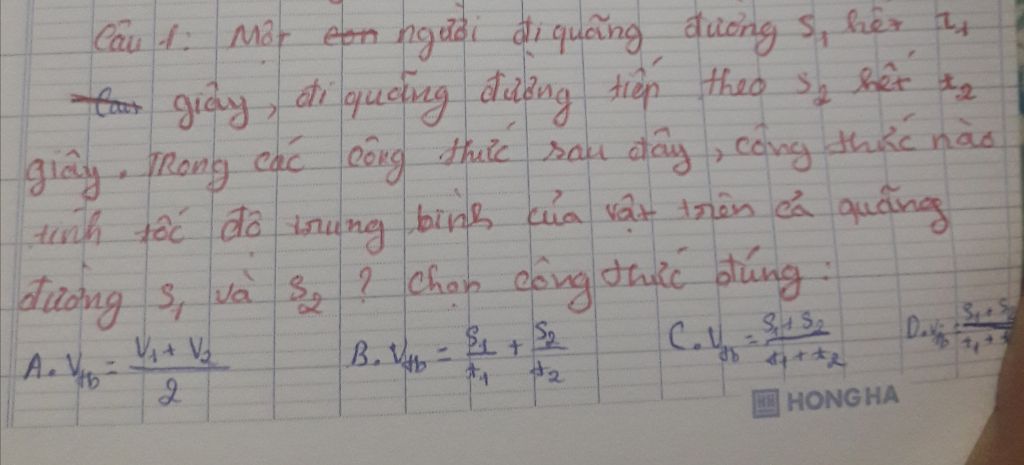 Câu 1: Một người đi quãng đường s₁ hết t₁
giây, đi quãng đường tiếp theo s₂ hết t₂
giây. Trong các công thức sau đây, công thức nào
tính tốc độ trung bình của vật trên cả quãng
đường s₁ và s₂ ? Chọn công thức đúng:
A. Vtb = (V₁ + V₂)/2 B. Vtb = S₁/t₁ + S₂/t₂ C. Vtb = (S₁ + S₂)/(t₁ + t₂) D. Vtb =
HONG HA